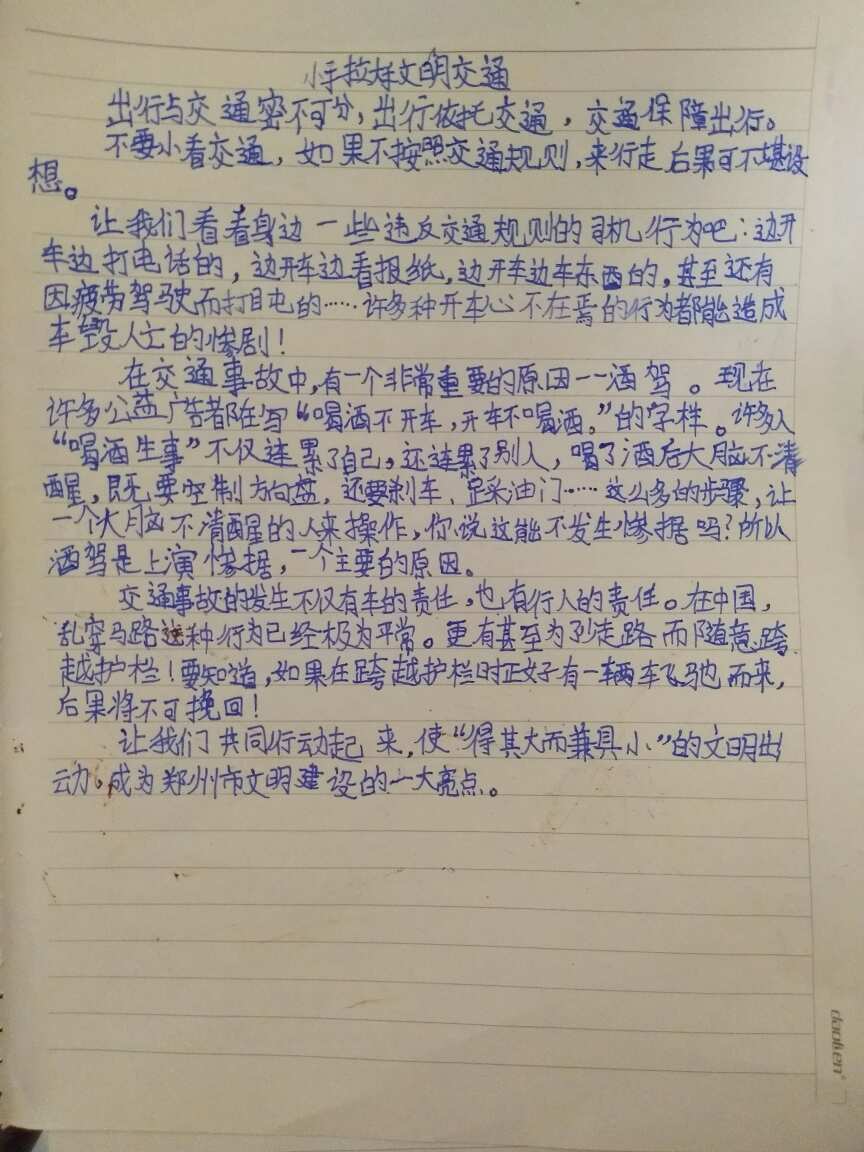 小手拉大手文明交通
出行与交通密不可分，出行依托交通，交通保障出行。
不要小看交通，如果不按照交通规则，来行走后果可不堪设
想。
让我们看看身边一些违反交通规则的司机行为吧：边开
车边打电话的，边开车边看报纸，边开车边车东西的，甚至还有
因疲劳驾驶而打目屯的……许多种开车心不在焉的行为都能造成
车毁人亡的惨剧！
在交通事故中，有一个非常重要的原因——酒驾。现在
许多公益广告都在写“喝酒不开车，开车不喝酒。”的字样。许多人
“喝酒生事”不仅连累了自己，还连累了别人，喝了酒后大脑不清
醒，既要控制方向盘，还要刹车、踩油门……这么多的步骤，让
一个大脑不清醒的人来操作，你说这能不发生惨据吗？所以
酒驾是上演惨据，一个主要的原因。
交通事故的发生不仅有车的责任，也有行人的责任。在中国，
乱穿马路这种行为已经极为平常。更有甚至为了少走路而随意跨
越护栏！要知道，如果在跨越护栏时正好有一辆车飞驰而来，
后果将不可挽回！
让我们共同行动起来，使“得其大而兼具小”的文明出
动。成为郑州市文明建设的一大亮点。